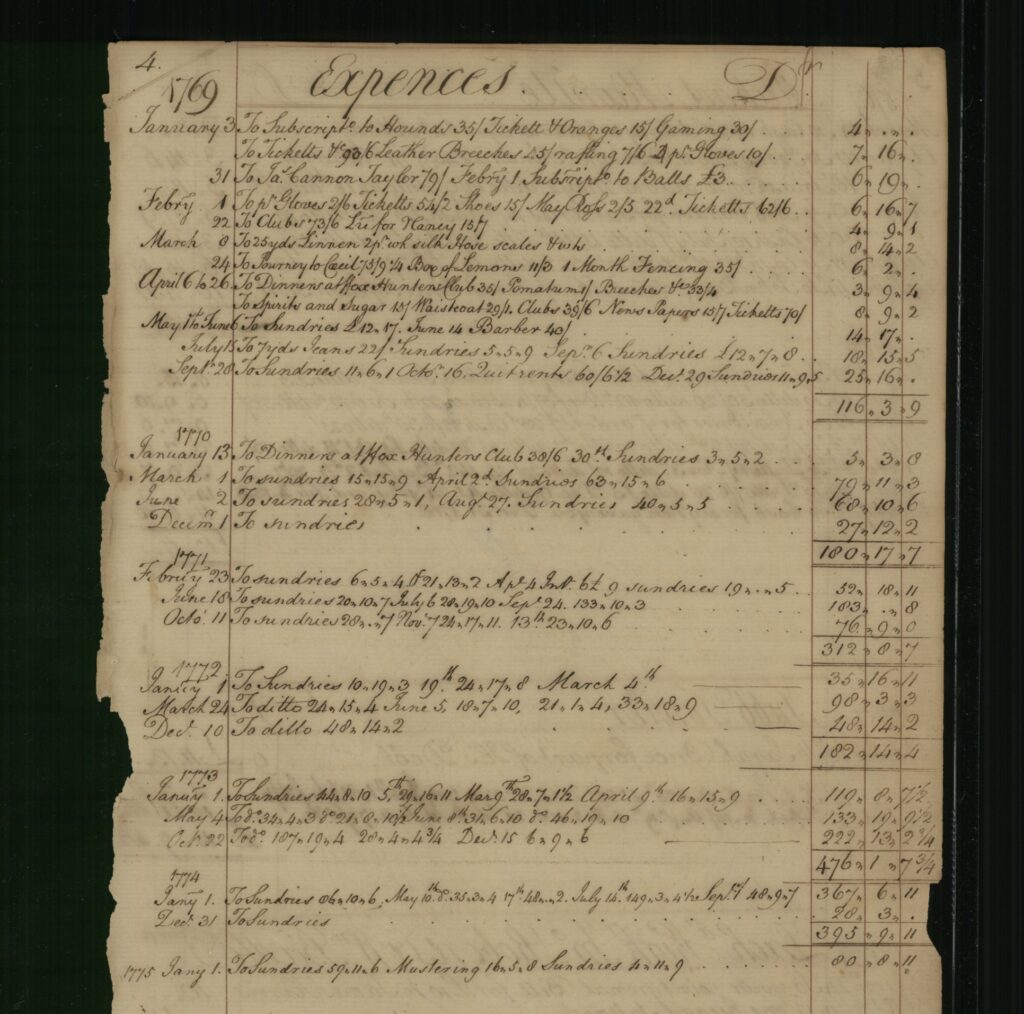 4.
1769 Expences. Dr
January 3 To Subscripto to Hounds 35/ Tickett & Oranges 15/ Gaming 30/ 4 " . " .
To Ticketts &c 93/6 Leather Breeches £5/ rafling 7/6 2 pr Gloves 10/ 7 " 16 " .
31 To Jas Cannon Taylor 79/ Febry 1 Subscripto to Balls £3 6 " 19 " .
Febry 1 To pr Gloves 2/6 Ticketts 54/2 Shoes 15/ May Ross 2/5 22d Ticketts 62/6 6 " 16 " 7
22 To Clubs 73/6 for Nancy 15/7 4 " 9 " 1
March 8 To 25yds Linnen 2pr wh silk Hose scales & wts 8 " 14 " 2
24 To Journey to Cecil 75/9 1/4 Box of Lemons 11/3 1 Month Fencing 35/ 6 " 2 " .
April 6 to 26 To Dinners at Fox Hunters Club 35/ Pomatums/ Breeches &c 33/4 3 " 9 " 4
To Spirits and Sugar 15/ Waistcoat 29/1 Clubs 39/6 News Papers 15/7 Ticketts 70/ 8 " 9 " 2
May 1st to June 6 To Sundries £12 " 17. June 14 Barber 40/ 14 " 17 " .
July 15 To 7yds Jeans 22/ Sundries 5 " 5 " 9 Sepr 6 Sundries £12 " 7 " 8 18 " 15 " 5
Sept. 28 To Sundries 11 " 6 " 1 Octor 16. Quitrents 60/6 1/2 Decr 29 Sundries 11 " 9 " 5 25 " 16 " .
116 " 3 " 9
1770
January 13 To Dinners at Fox Hunters Club 38/6 30th Sundries 3 " 5 " 2 5 " 3 " 8
March 1 To sundries 15 " 15 " 9 April 2d Sundries 63 " 15 " 6 79 " 11 " 3
June 2 To sundries 28 " 5 " 1, Augt 27. Sundries 40 " 5 " 5 68 " 10 " 6
Decemr 1 To sundries 27 " 12 " 2
180 " 17 " 7
1771
23 To sundries 6 " 5 " 4 Do 21 " 13 " 2 Apr 4 9 sundries 19 " . " 5 52 " 18 " 11
June 18 To sundries 20 " 10 " 7 July 6 28 " 19 " 10 Sepr 24. 133 " 10 " 3 183 " . " 8
Octo. 11 To sundries 28 " . " 7 Novr 7 24 " 17 " 11. 13th 23 " 10 " 6 76 " 9 " 0
312 " 8 " 7
1772
Janry 1 To Sundries 10 " 19 " 3 19th 24 " 17 " 8 March 4th 35 " 16 " 11
March 24 To ditto 24 " 15 " 4 June 5, 18 " 7 " 10, 21 " 1 " 4, 33 " 18 " 9 98 " 3 " 3
Decr 10 To ditto 48 " 14 " 2 48 " 14 " 2
182 " 14 " 4
1773
Janury 1. To Sundries 44 " 8 " 10 5th 29 " 16 " 11 Mar 9th 28 " 7 " 1 1/2 April 9th 16 " 15 " 9 119 " 8 " 7 1/2
May 4 To do 34 " 4 " 3 do 21 " 8 " 10 1/2 June 8th 31 " 6 " 10 do 46 " 19 " 10 133 " 19 " 9 1/2
Oct. 22 To do 187 " 19 " 4 28 " 4 " 4 3/4 Decr 15 6 " 9 " 6 222 " 13 " 2 3/4
476 " 1 " 7 3/4
1774
Jany 1. To Sundries 10 " 6, May 10th do 35 " 3 " 4 17th 48 " . " 2. July 14th 149 " 3 " 4 1/2 Sepr 48 " 9 " 7 367 " 6 " 11
Decr 31 To Sundries 28 " 3 " .
395 " 9 " 11
1775 Jany 1. To Sundries 59 " 11 " 6 Mustering 16 " 5 " 8 Sundries 4 " 11 " 9 80 " 8 " 11